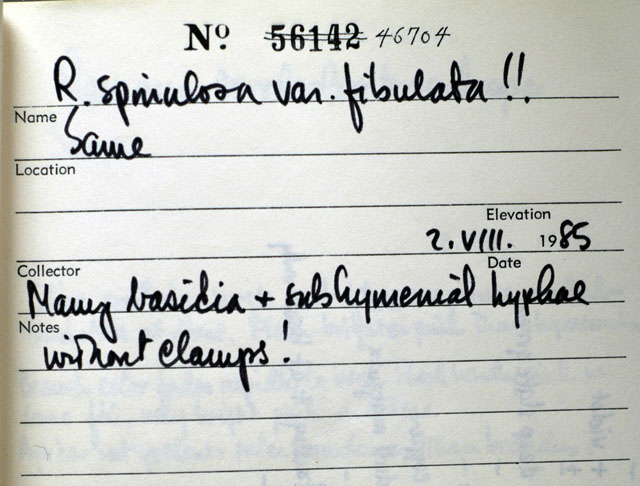 Nº 56142 46704
R. spinulosa var. fibulata !!
Name
Same
Location
Elevation
2. VIII. 1985
Collector Date
Many basidia + subhymenial hyphae
Notes
without clamps!